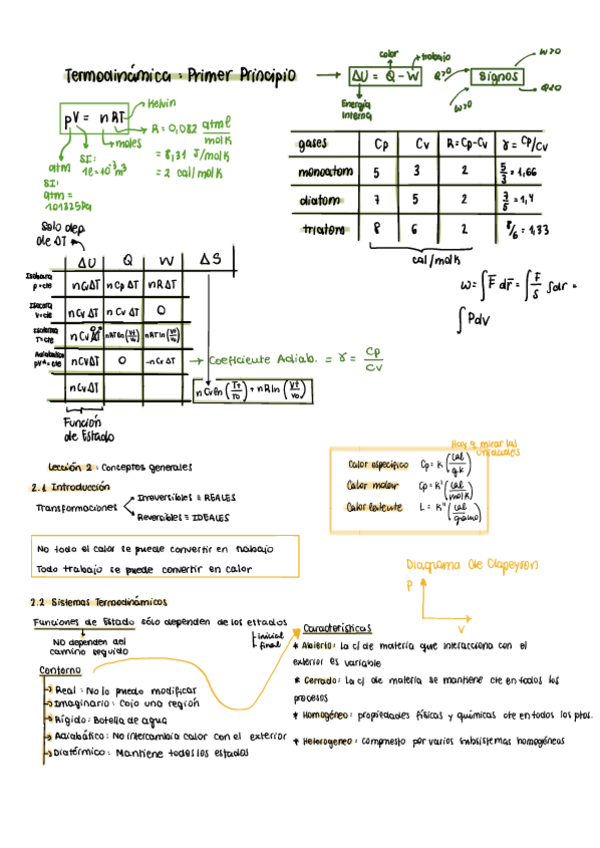 Termodinámica : Primer Principio
calor
trabajo
ΔU = Q - W
Energía
Interna
signos
W>0
Q>0
Q<0
W>0
pV = nRT
Kelvin
moles
R = 0,082 atm l / mol k
= 8,31 J/mol k
= 2 cal/mol k
atm
SI:
atm =
101325Pa
SI:
1l = 10⁻³ m³
gases Cp Cv R = Cp-Cv γ = Cp/Cv
monoatom 5 3 2 5/3 = 1,66
diatom 7 5 2 7/5 = 1,4
triatom 8 6 2 8/6 = 1,33
cal/mol k
Solo dep.
de ΔT
ΔU Q W ΔS
Isobara
p=cte
nCvΔT nCpΔT nRΔT
Isocora
V=cte
nCvΔT nCvΔT 0
Isoterma
T=cte
nCvΔT 0 nRT ln(Vf/Vo) nRT ln(Vf/Vo)
Adiabática
pVᵞ=cte
nCvΔT 0 -nCvΔT
Coeficiente Adiab. = γ = Cp/Cv
nCvΔT
nCv ln(Tf/To) + nR ln(Vf/Vo)
W = ∫ F dr = ∫ F/S Sdr =
∫ PdV
Función
de Estado
Lección 2 : Conceptos generales
2.1 Introducción
Transformaciones
Irreversibles = REALES
Reversibles = IDEALES
Hay q mirar las
unidades
Calor específico Cp = K (cal/g k)
Calor molar Cp = K' (cal/mol k)
Calor latente L = K'' (cal/gramo)
No todo el calor se puede convertir en trabajo
Todo trabajo se puede convertir en calor
Diagrama de Clapeyron
P
V
2.2 Sistemas Termodinámicos
Funciones de Estado sólo dependen de los estados
inicial
final
NO dependen del
camino seguido
Contorno
Real : No lo puedo modificar
Imaginario : Cojo una región
Rígido : Botella de agua
Adiabático : No intercambia calor con el exterior
Diatérmico : Mantiene todos los estados
Características
* Abierto : la c/ de materia que interacciona con el
exterior es variable
* Cerrado : La c/ de materia se mantiene cte en todos los
procesos
* Homogéneo : propiedades físicas y químicas cte en todos los ptos.
* Heterogeneo : compuesto por varios subsistemas homogéneos